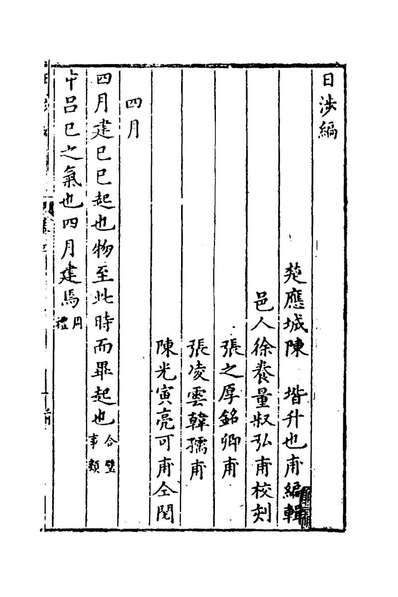 日涉編
楚應城陳堦升也甫編輯
邑人徐養量叔弘甫校刻
張之厚銘卿甫
張凌雲韓孺甫
陳光寅亮可甫仝閱
四月
四月建巳巳起也物至此時而畢起也合璧事類
中呂巳之氣也四月建焉周禮